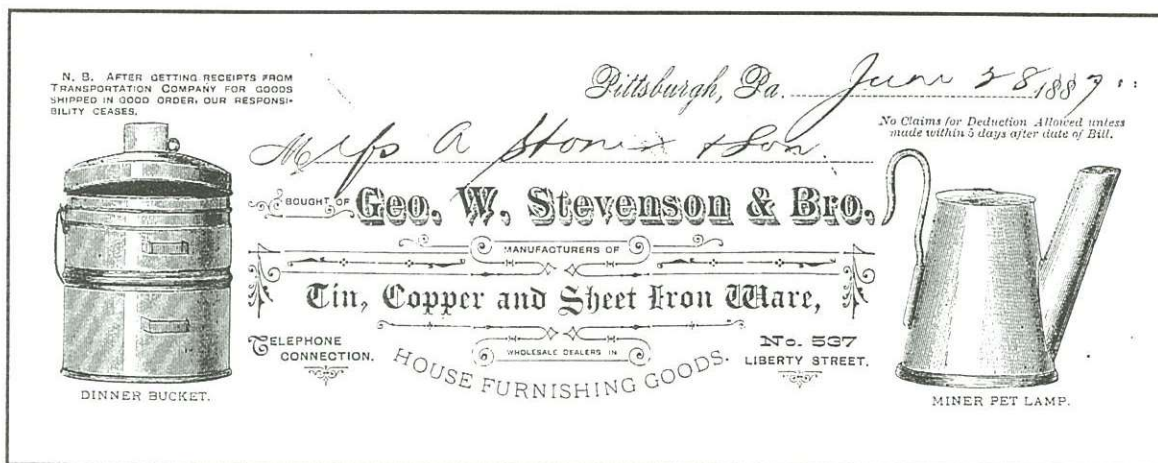 N. B. AFTER GETTING RECEIPTS FROM
TRANSPORTATION COMPANY FOR GOODS
SHIPPED IN GOOD ORDER, OUR RESPONSI-
BILITY CEASES.
Pittsburgh, Pa. June 28 1887
No Claims for Deduction Allowed unless
made within 5 days after date of Bill.
M A & Son.
BOUGHT OF Geo. W. Stevenson & Bro.,
MANUFACTURERS OF
Tin, Copper and Sheet Iron Ware,
TELEPHONE
CONNECTION.
WHOLESALE DEALERS IN
HOUSE FURNISHING GOODS.
No. 537
LIBERTY STREET.
DINNER BUCKET.
MINER PET LAMP.